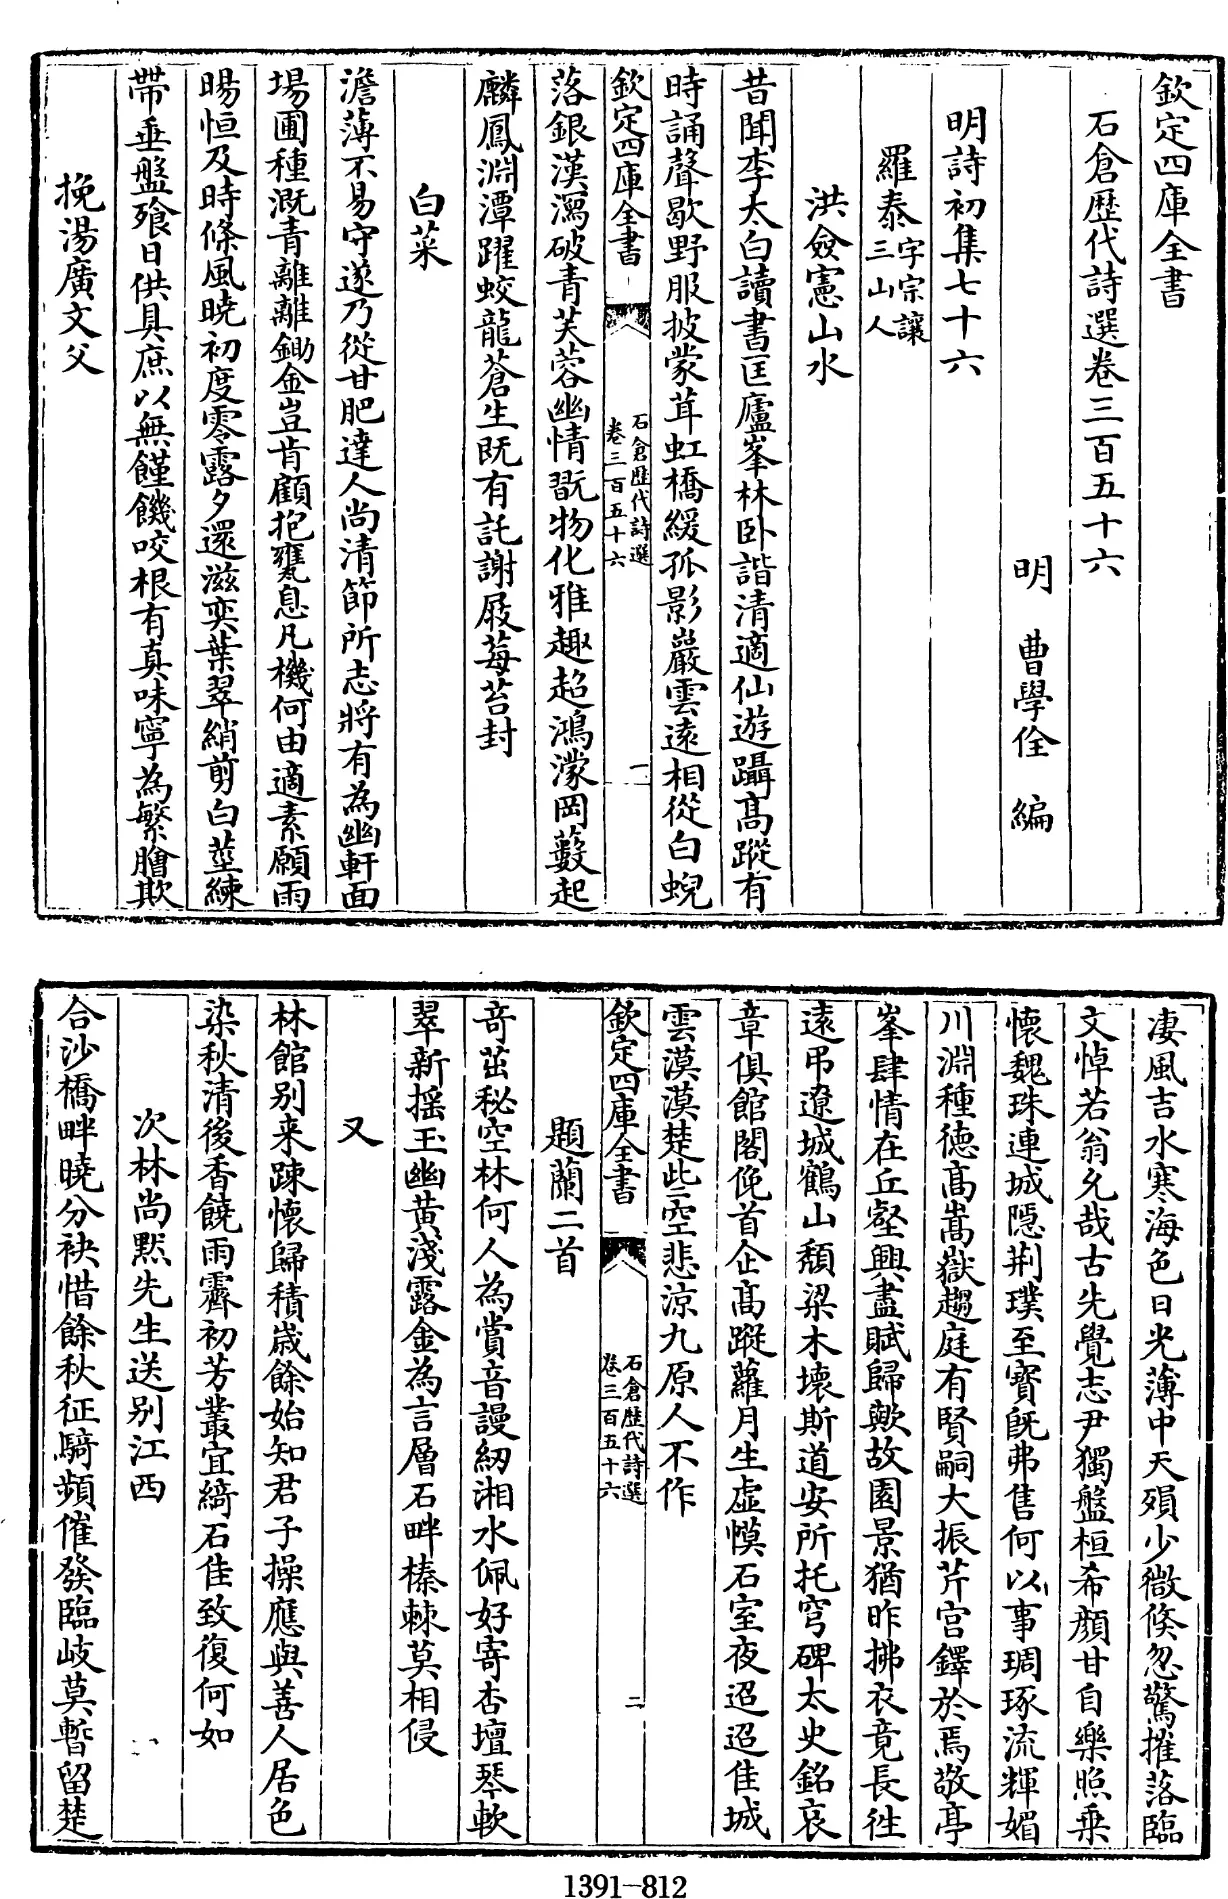 欽定四庫全書
石倉歴代詩選卷三百五十六
明 曹學佺 編
明詩初集七十六
羅泰字宗讓三山人
洪僉憲山水
昔聞李太白讀書匡廬峯林卧諧清適仙遊躡高蹤有
時誦聲歇野服披蒙茸虹橋緩孤影巖雲遠相從白蜺
欽定四庫全書
石倉歴代詩選
卷三百五十六
一
落銀漢瀉破青芙蓉幽情翫物化雅趣超鴻濛岡藪起
麟鳳淵潭躍蛟龍蒼生既有託謝屐莓苔封
白菜
澹薄不易守遂乃從甘肥達人尚清節所志將有為幽軒面
場圃種溉青離離鋤金豈肯顧抱甕息凡機何由適素願雨
暘恒及時條風曉初度零露夕還滋奕葉翠綃剪白莖練
帶垂盤飱日供具庶以無饉饑咬根有真味寧為繁膾欺
挽湯廣文父
淒風吉水寒海色日光薄中天殞少微倐忽驚摧落臨
文悼若翁允哉古先覺志尹獨盤桓希顔甘自樂照乗
懷魏珠連城隠荆璞至寳旣弗售何以事琱琢流輝媚
川淵種徳髙嵩嶽趨庭有賢嗣大振芹宫鐸於焉敬亭
峯肆情在丘壑興盡賦歸歟故園景猶昨拂衣竟長徃
逺弔遼城鶴山頹梁木壊斯道安所托穹碑太史銘哀
章俱館閣俛首企髙蹤蘿月生虚幙石室夜迢迢佳城
雲漠漠楚些空悲涼九原人不作
欽定四庫全書
石倉歴代詩選
卷三百五十六
二
題蘭二首
奇茁秘空林何人為賞音謾紉湘水佩好寄杏壇琴軟
翠新揺玉幽黄淺露金為言層石畔榛棘莫相侵
又
林館别来踈懷歸積歳餘始知君子操應與善人居色
染秋清後香饒雨霽初芳叢宜綺石佳致復何如
次林尚黙先生送别江西
合沙橋畔曉分袂惜餘秋征騎頻催發臨岐莫暫留楚
1391-812